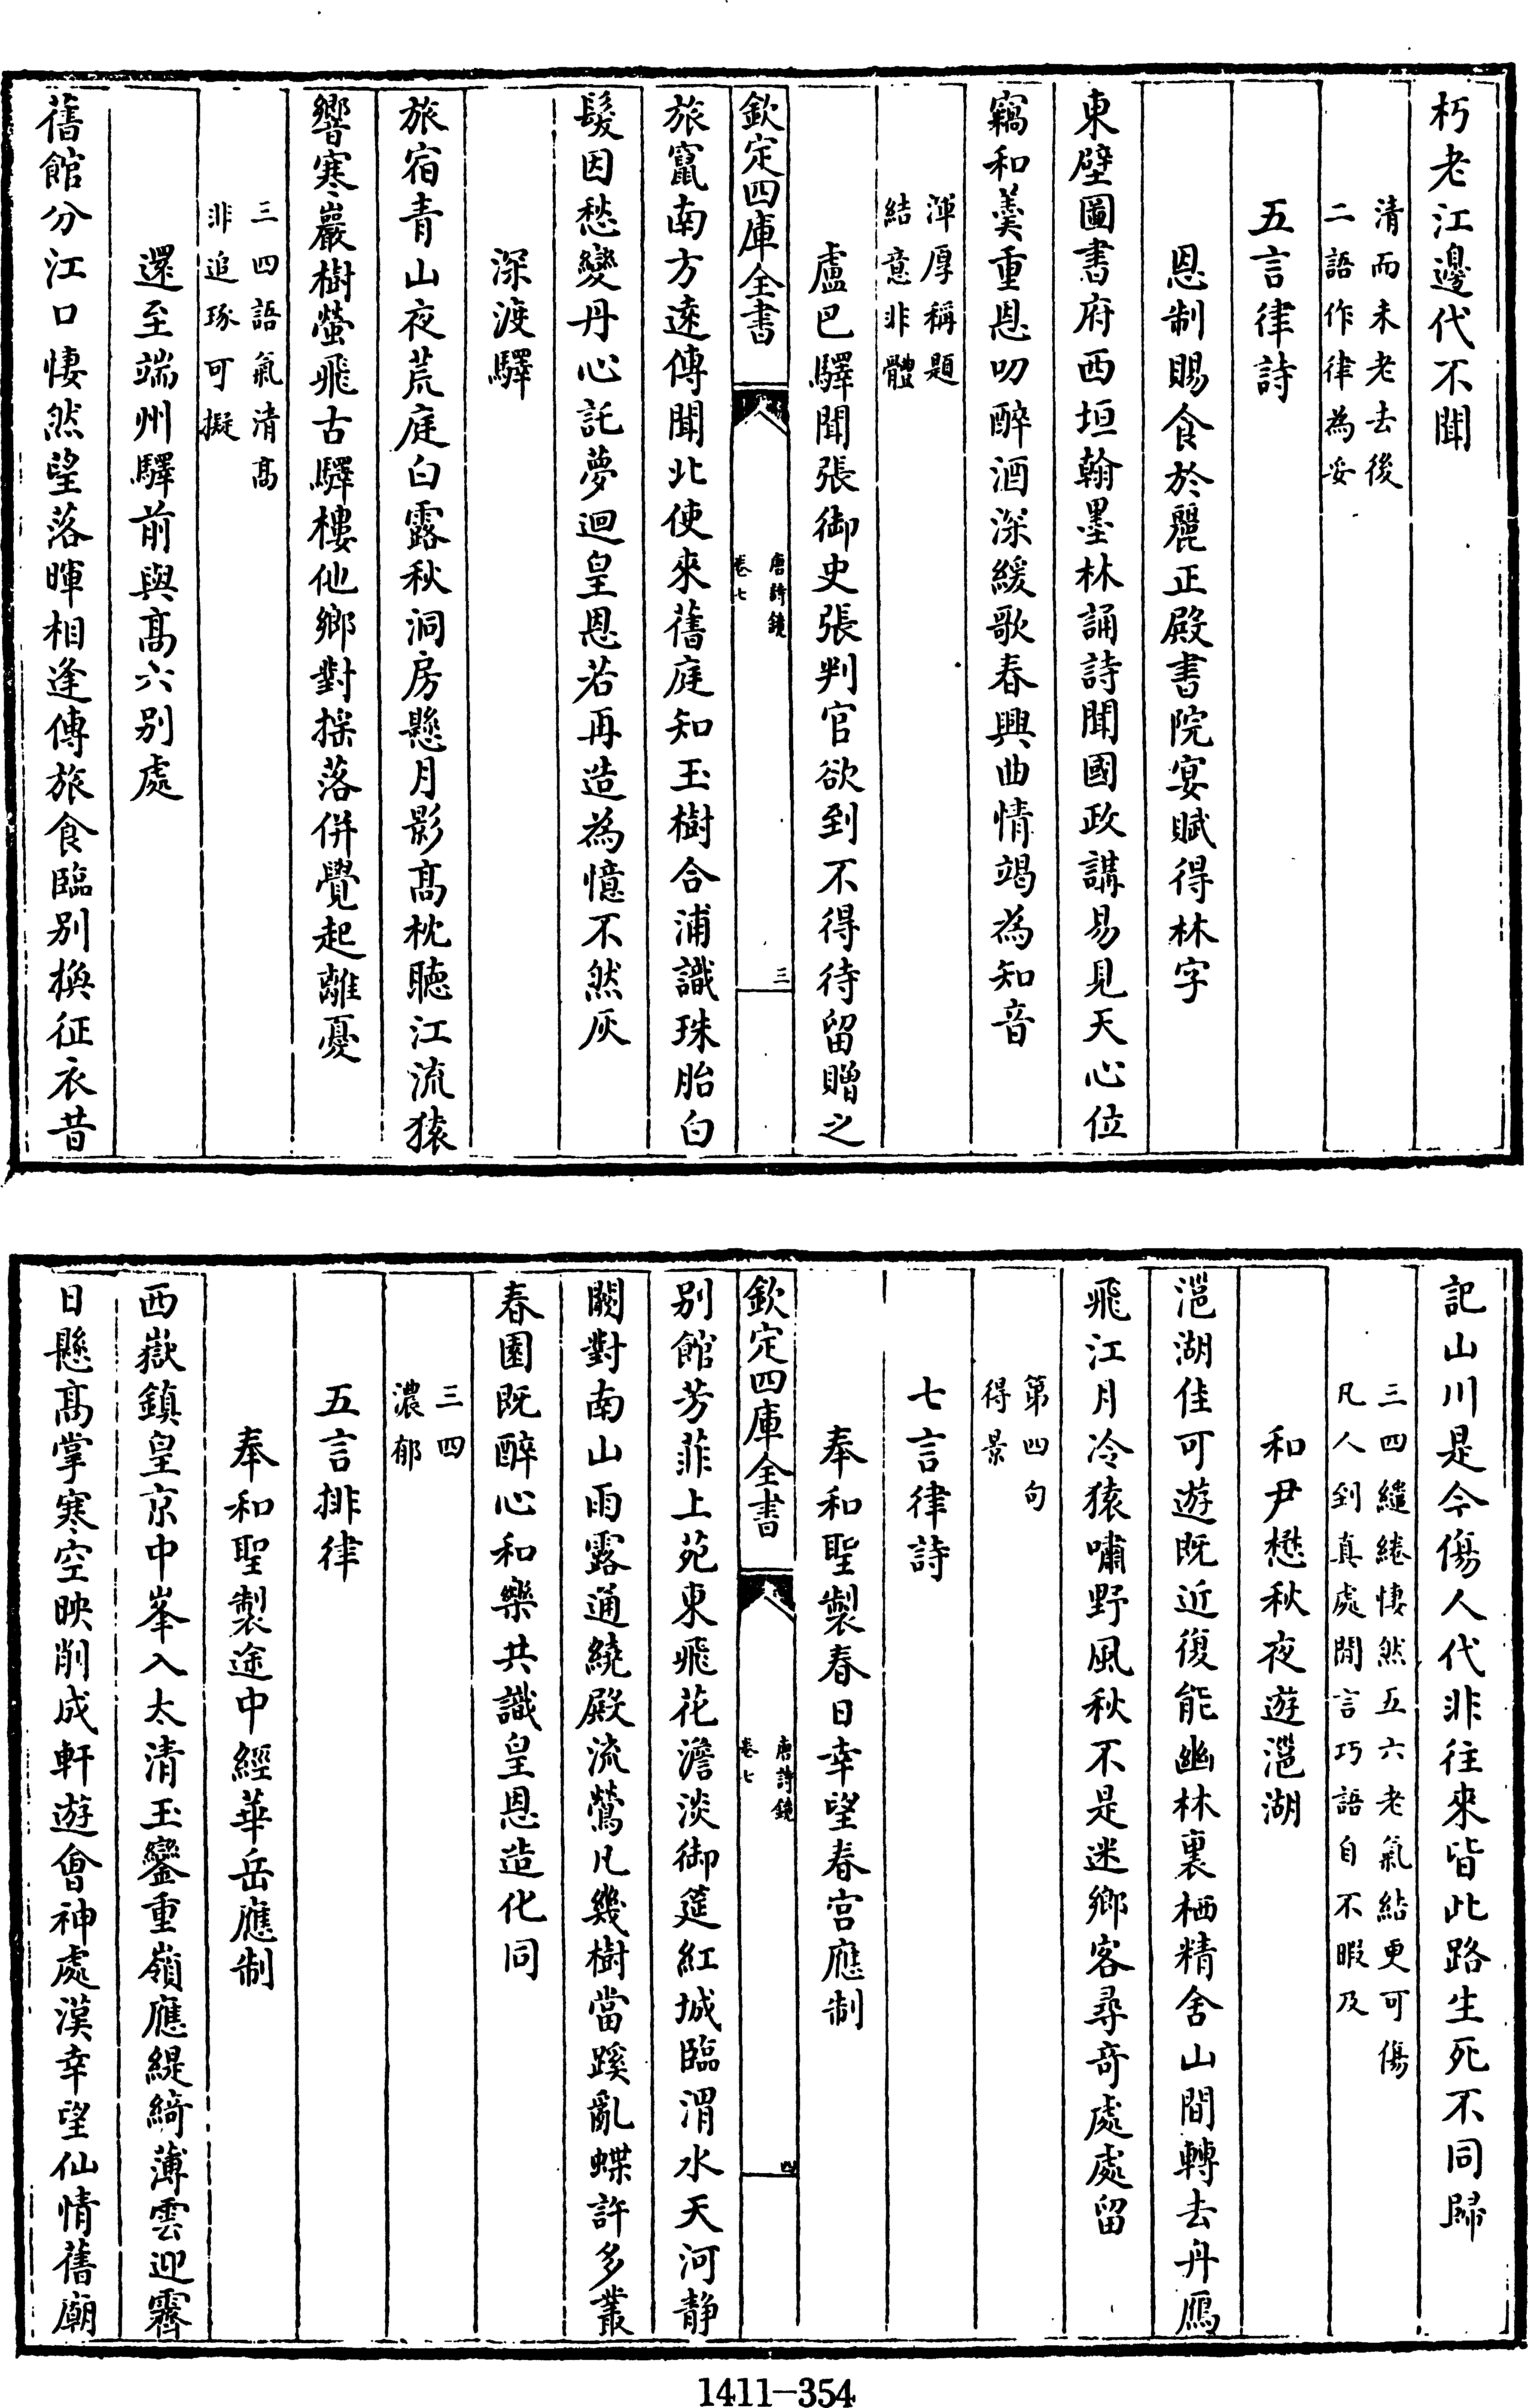 朽老江邊代不聞
清而未老去後
二語作律為妥
五言律詩
恩制賜食於麗正殿書院宴賦得林字
東壁圖書府西垣翰墨林誦詩聞國政講易見天心位
竊和羮重恩叨醉酒深緩歌春興曲情竭為知音
渾厚稱題
結意非體
盧巴驛聞張御史張判官欲到不得待留贈之
欽定四庫全書
唐詩鏡
卷七
三
旅竄南方遠傳聞北使來舊庭知玉樹合浦識珠胎白
髮因愁變丹心託夢迴皇恩若再造為憶不然灰
深渡驛
旅宿青山夜荒庭白露秋洞房懸月影髙枕聴江流猿
響寒巖樹螢飛古驛樓他鄉對揺落併覺起離憂
三四語氣清髙
非追琢可擬
還至端州驛前與髙六别處
舊館分江口悽然望落暉相逢傳旅食臨别換征衣昔
記山川是今傷人代非往來皆此路生死不同歸
三四繾綣悽然五六老氣結更可傷
凡人到真處閒言巧語自不暇及
和尹懋秋夜遊㴩湖
㴩湖佳可遊既近復能幽林裏栖精舍山間轉去舟鴈
飛江月冷猿嘯野風秋不是迷鄉客尋竒處處留
第四句
得景
七言律詩
奉和聖製春日幸望春宫應制
欽定四庫全書
唐詩鏡
卷七
四
别館芳菲上苑東飛花澹淡御筵紅城臨渭水天河静
闕對南山雨露通繞殿流鶯凡幾樹當蹊亂蝶許多叢
春園既醉心和樂共識皇恩造化同
三四
濃郁
五言排律
奉和聖製途中經華岳應制
西嶽鎮皇京中峯入太清玉鑾重嶺應緹綺薄雲迎霽
日懸髙掌寒空映削成軒遊會神處漢幸望仙情舊廟
1411—354